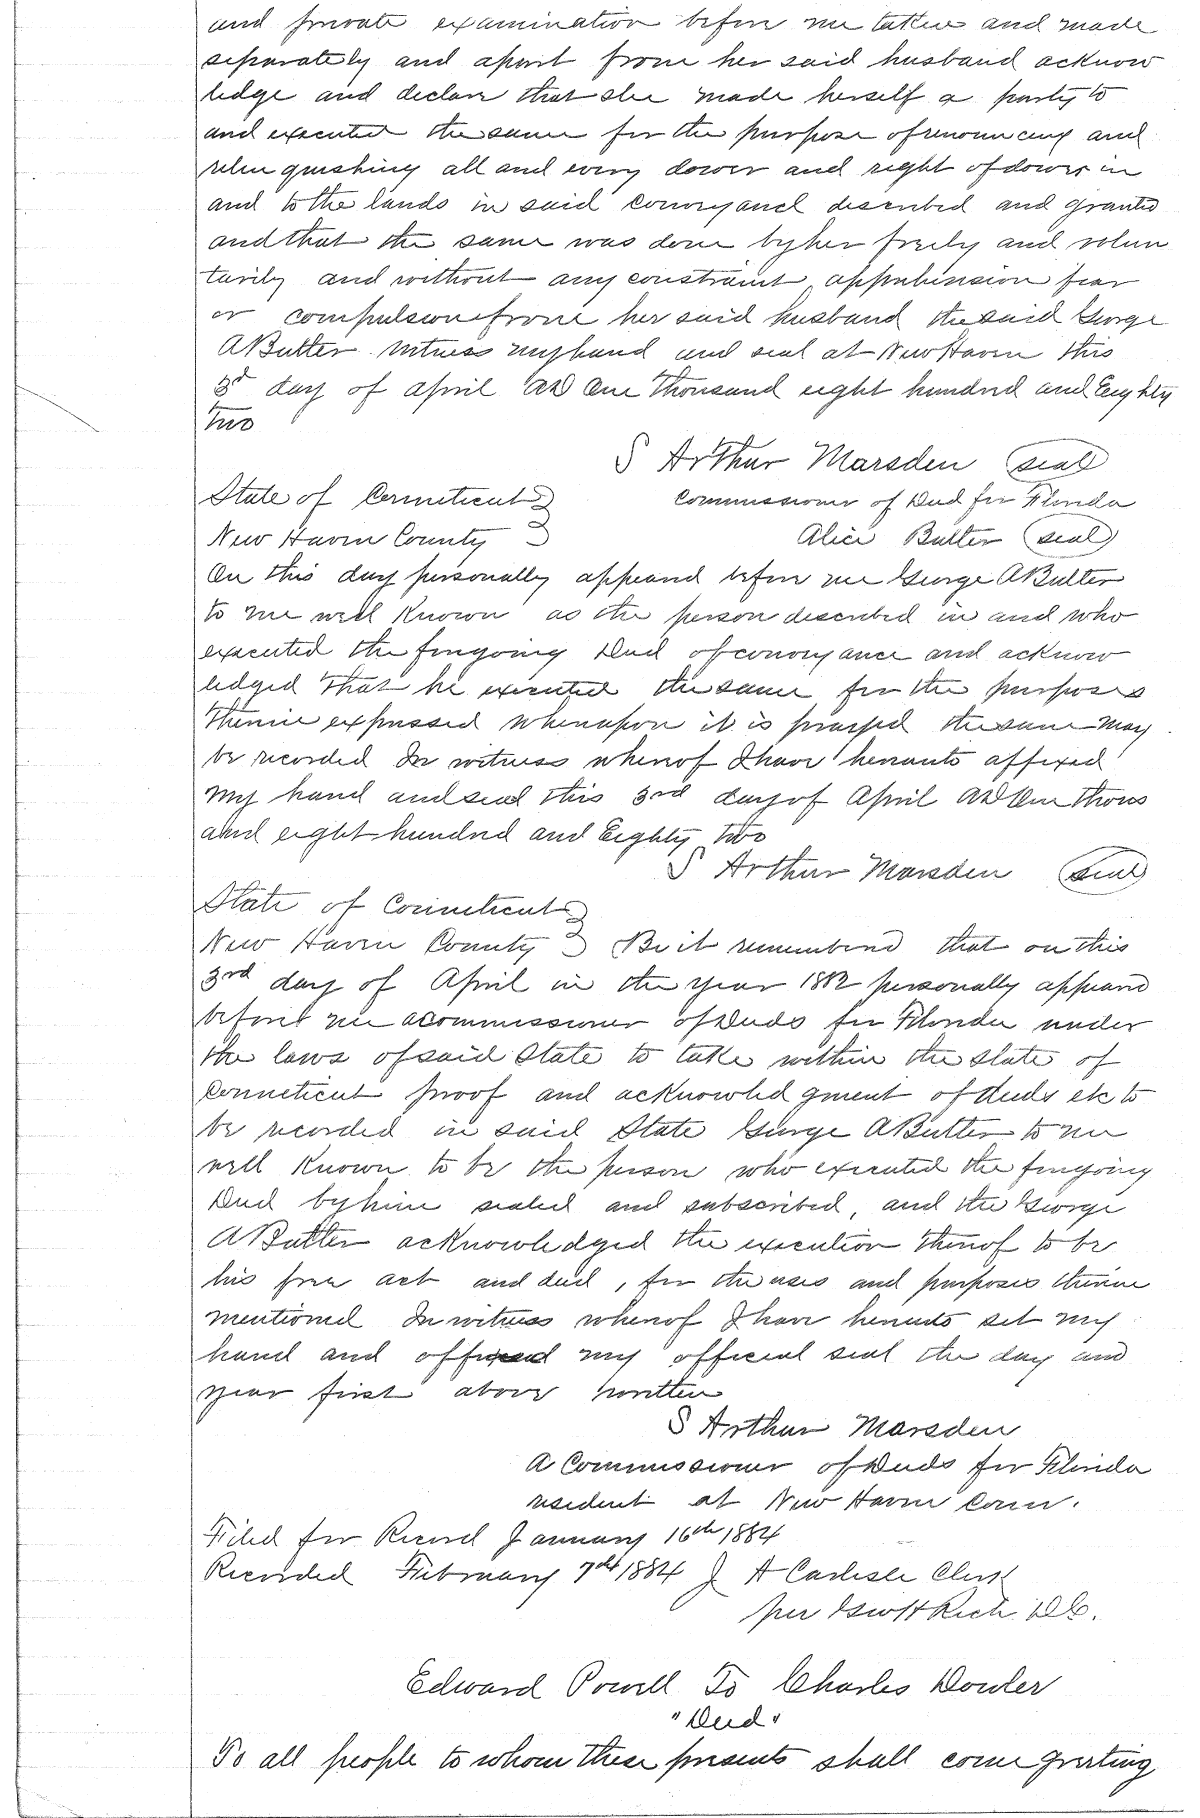 and private examination before me taken and made
separately and apart from her said husband acknow
ledge and declare that she made herself a party to
and executed the same for the purpose of renouncing and
relinquishing all and every dower and right of dower in
and to the lands in said conveyance described and granted
and that the same was done by her freely and volun
tarily and without any constraint apprehension fear
or compulsion from her said husband the said George
A Butler Witness my hand and seal at New Haven this
3rd day of April AD One Thousand eight hundred and Eighty
Two
S Arthur Marsden (seal)
State of Conneticut
Commissioner of Deed for Florida
New Haven County
Alice Butler (seal)
On this day personally appeard before me George A Butler
to me well Known as the person described in and who
executed the foregoing Deed of conveyance and acknow
ledged that he executed the same for the purposes
therein expressed whereupon it is prayed the same may
be recorded In witness whereof I have hereunto affixed
my hand and seal this 3rd day of April AD One Thous
and eight hundred and Eighty two
S Arthur Marsden (seal)
State of Conneticut
New Haven County Be it rememberd that on this
3rd day of April in the year 1882 personally appeard
before me a commissioner of Deeds for Florida under
the laws of said State to take within the State of
Conneticut proof and acknowledgment of deeds etc to
be recorded in said State George A Butler to me
well Known to be the person who executed the foregoing
Deed by him sealed and subscribed, and the George
A Butler acknowledged the execution thereof to be
his free act and deed, for the uses and purposes therein
mentioned In witness whereof I have hereunto set my
hand and affixed my official seal the day and
year first above written
S Arthur Marsden
A Commissioner of Deeds for Florida
resident at New Haven Conn.
Filed for Record January 16th 1884
Recorded February 7th 1884 J A Carlisle Clerk
per Geo H Rich D.C.
Edward Powell To Charles Dowler
"Deed"
To all people to whom these presents shall come greeting